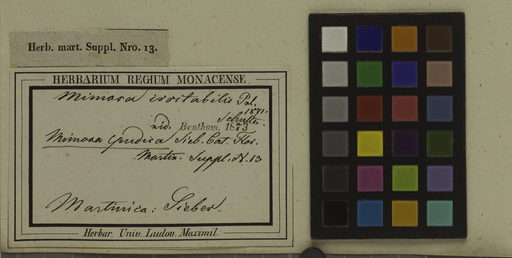 Herb. mart. Suppl. Nro. 13.
HERBARIUM REGIUM MONACENSE.
Mimosa
1871.
vid. Benthom. 1873
Mimosa pudica Sieb. Cat. Hor.
Martin. Suppl. N. 13
Martinica: Sieber.
Herbar. Univ. Ludov. Maximil.